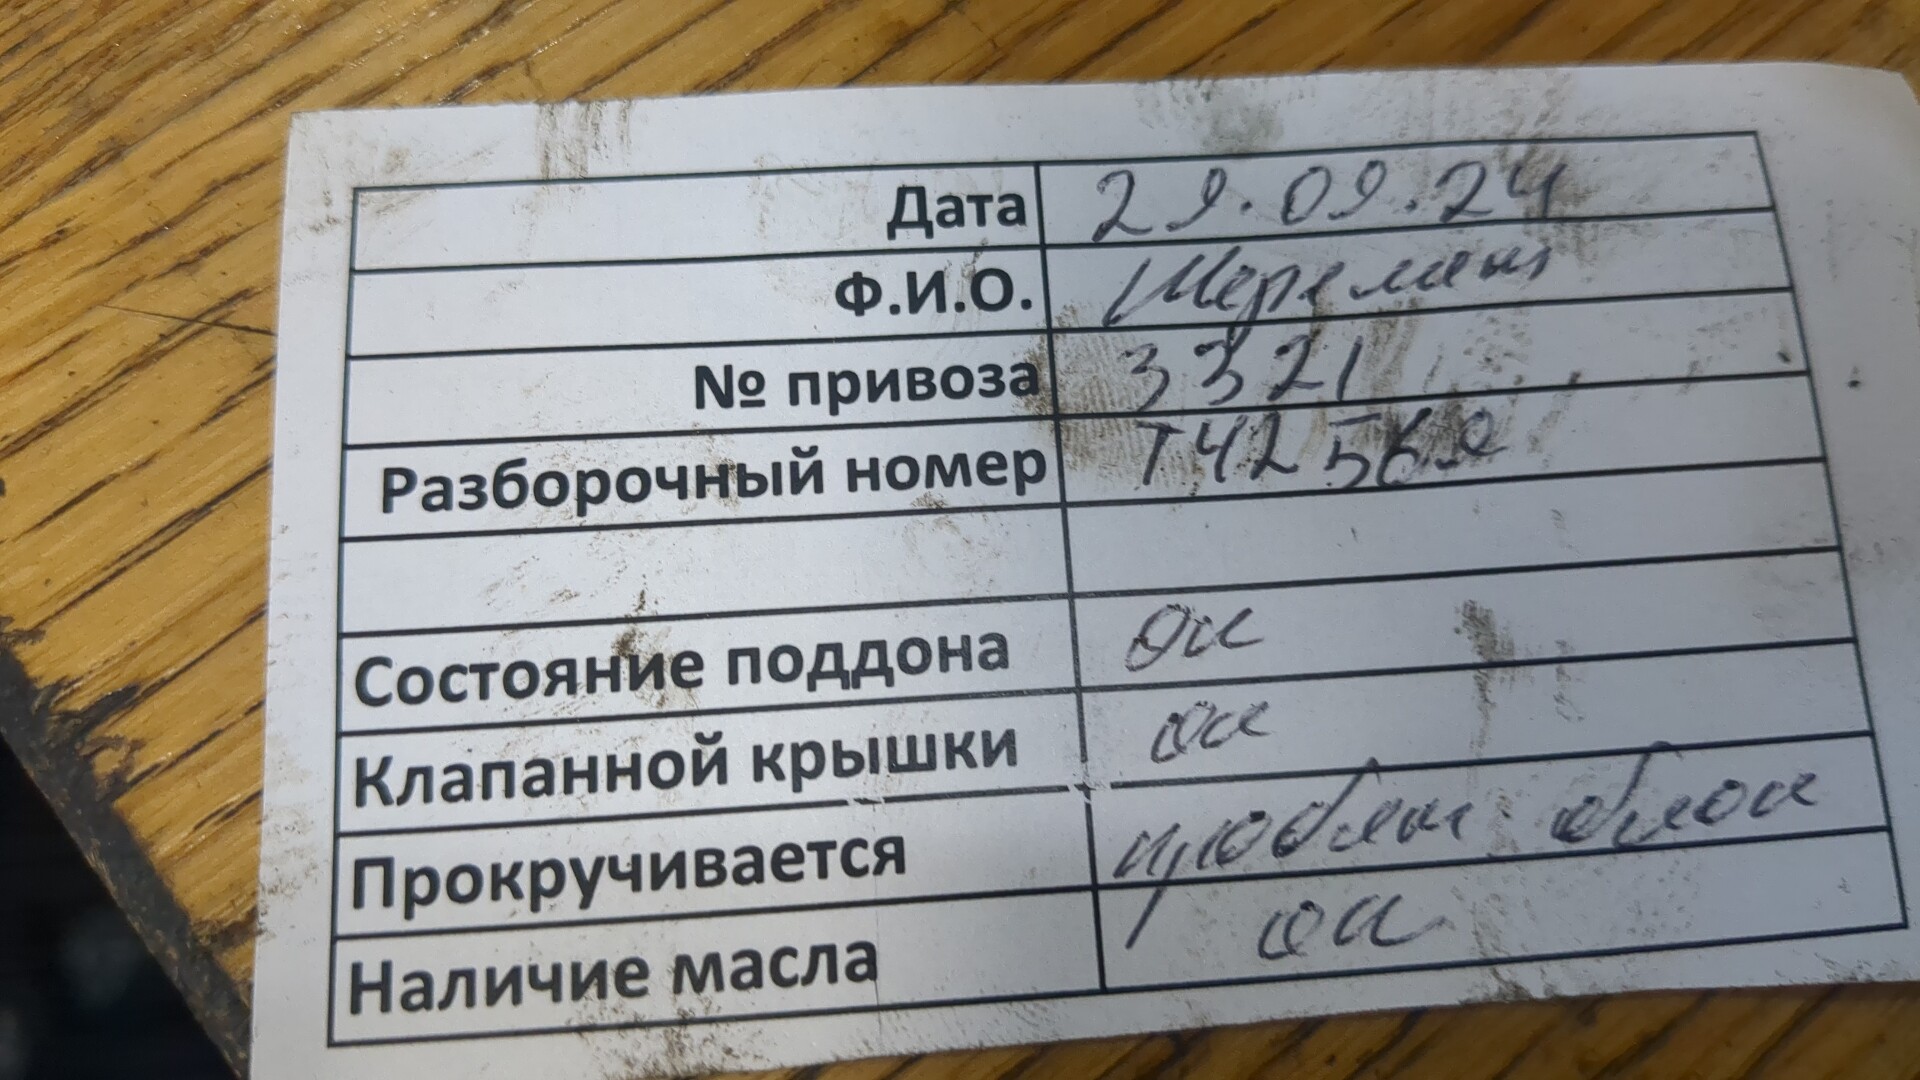 Дата 29.09.24
Ф.И.О.
№ привоза 3321
Разборочный номер
Состояние поддона ок
Клапанной крышки ок
Прокручивается пробит блок
Наличие масла ок